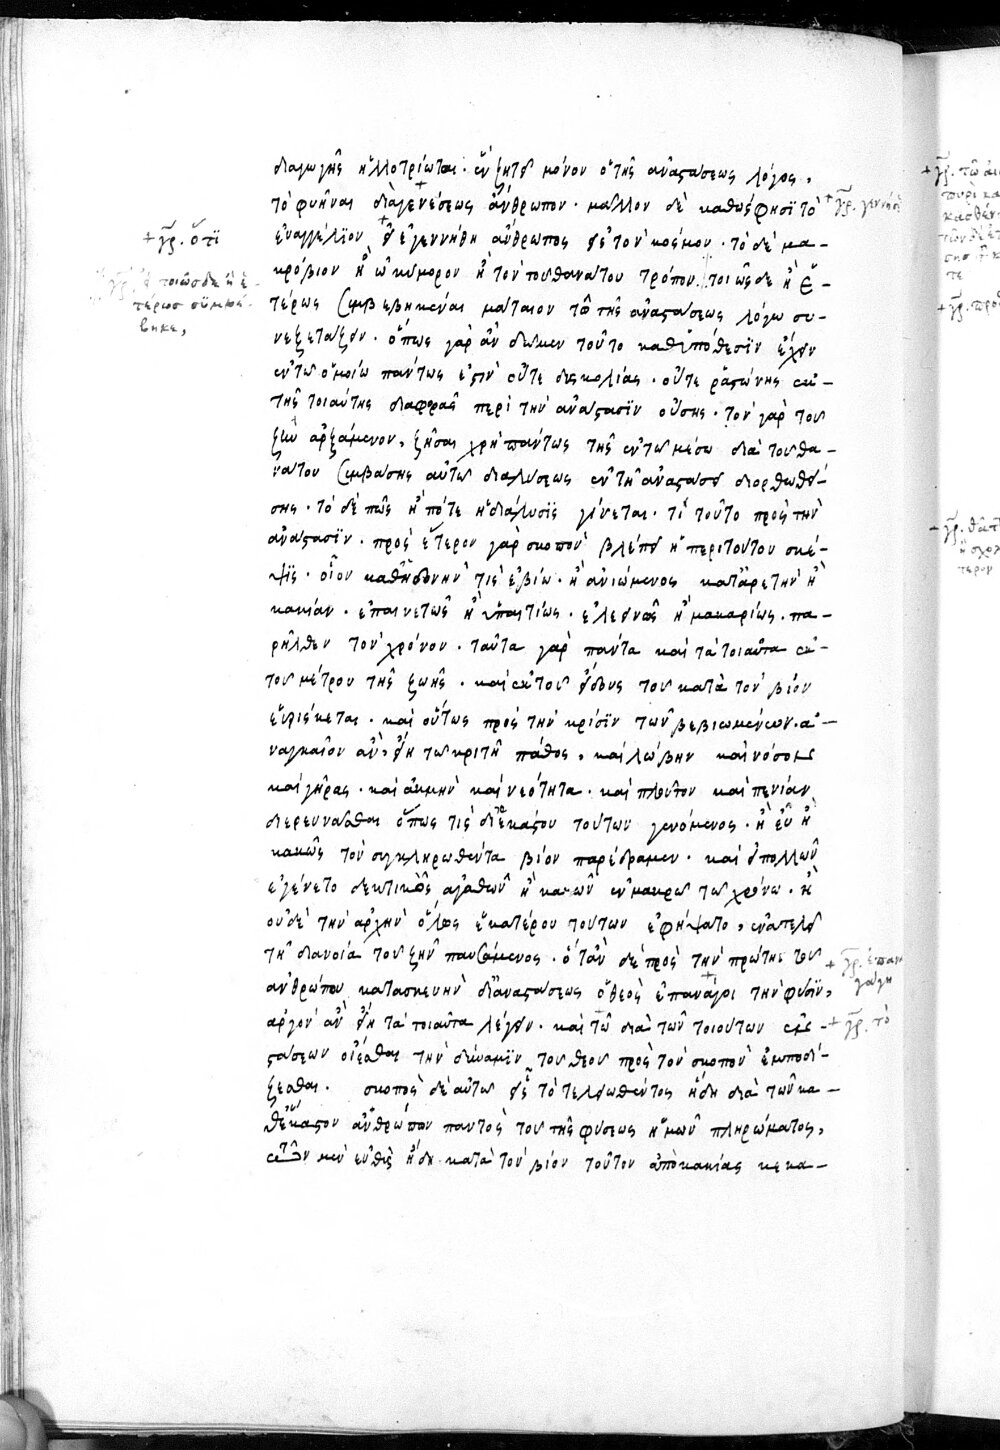 διαγωγῆς ἠλλοτρίωται. ἓν ζητεῖ μόνον ὁ τῆς ἀναστάσεως λόγος,
τὸ φυῆναι διὰ γενέσεως ἄνθρωπον. μᾶλλον δὲ καθώς φησι τὸ
+ γρ. γεννήσε
εὐαγγέλιον εἰ ἐγεννήθη ἄνθρωπος εἰς τὸν κόσμον. τὸ δὲ μα-
+ γρ. ὅτι
κρόβιον ἢ ὠκύμορον ἢ τὸν τοῦ θανάτου τρόπον τοιῶσδε ἢ ἑ-
γρ. ἢ τοιῶσδε ἢ ἑ-
τέρως συμβεβηκέναι μάταιον τῷ τῆς ἀναστάσεως λόγῳ συ-
τέρως συμβέ-
βηκε,
νεξετάζειν. ὅπως γὰρ ἂν δῶμεν τοῦτο καθ' ὑπόθεσιν ἔχειν
ἐν τῷ ὁμοίῳ πάντως ἐστὶν οὔτε δυσκολίας. οὔτε ῥαστώνης ἐκ
τῆς τοιαύτης διαφορᾶς περὶ τὴν ἀνάστασιν οὔσης. τὸν γὰρ τοῦ
ζῆν ἀρξάμενον, ζῆσαι χρὴ πάντως τῆς ἐν τῷ μέσῳ διὰ τοῦ θα-
νάτου συμβάσης αὐτῷ διαλύσεως ἐν τῇ ἀναστάσει διορθωθεί-
σης. τὸ δὲ πῶς ἢ πότε ἡ διάλυσις γίνεται. τί τοῦτο πρὸς τὴν
ἀνάστασιν. πρὸς ἕτερον γὰρ σκοπὸν βλέπει ἡ περὶ τούτου σκέ-
ψις. οἷον καθ' ἡδονήν τις ἐβίω. ἢ ἀνιώμενος κατ' ἀρετὴν ἢ
κακίαν. ἐπαινετῶς ἢ ὑπαιτίως. ἐλεεινῶς ἢ μακαρίως. πα-
ρῆλθεν τὸν χρόνον. ταῦτα γὰρ πάντα καὶ τὰ τοιαῦτα ἐκ
τοῦ μέτρου τῆς ζωῆς. καὶ ἐκ τοῦ εἴδους τοῦ κατὰ τὸν βίον
εὑρίσκεται. καὶ οὕτως πρὸς τὴν κρίσιν τῶν βεβιωμένων. ἀ-
ναγκαῖον ἂν, εἴη τῷ κριτῇ πάθος, καὶ λώβην καὶ νόσον
καὶ γῆρας. καὶ ἀκμὴν καὶ νεότητα. καὶ πλοῦτον καὶ πενίαν
διερευνᾶσθαι ὅπως τις δι' ἑκάστου τούτων γενόμενος. ἢ εὖ ἢ
κακῶς τὸν συγκληρωθέντα βίον παρέδραμεν. καὶ εἰ πολλῶν
ἐγένετο δεκτικὸς ἀγαθῶν ἢ κακῶν ἐν μακρῷ τῷ χρόνῳ. ἢ
οὐδὲ τὴν ἀρχὴν ὅλως ἑκατέρου τούτων ἐφήψατο, ἐν ἀτελεῖ
τῇ διανοίᾳ τοῦ ζῆν παυσάμενος. ὅταν δὲ πρὸς τὴν πρώτην τοῦ
ἀνθρώπου κατασκευὴν δι' ἀναστάσεως ὁ θεὸς ἐπανάγοι τὴν φύσιν,
+ γρ. ἐπανα
γάγῃ
ἀργὸν ἂν εἴη τὰ τοιαῦτα λέγειν. καὶ τῷ διὰ τῶν τοιούτων
+ γρ. τὸ
στάσεων οἴεσθαι τὴν δύναμιν τοῦ θεοῦ πρὸς τὸν σκοπὸν ἐμποδί-
ζεσθαι. σκοπὸς δὲ αὐτῷ εἷς τὸ τελειωθέντος ἤδη διὰ τῶν κα-
θέκαστον ἀνθρώπων παντὸς τοῦ τῆς φύσεως ἡμῶν πληρώματος,
τῶν μὲν εὐθὺς ἤδη κατὰ τὸν βίον τοῦτον ἀπὸ κακίας κεκα-
+ γρ. τῷ
+ γρ. προ
+ γρ.